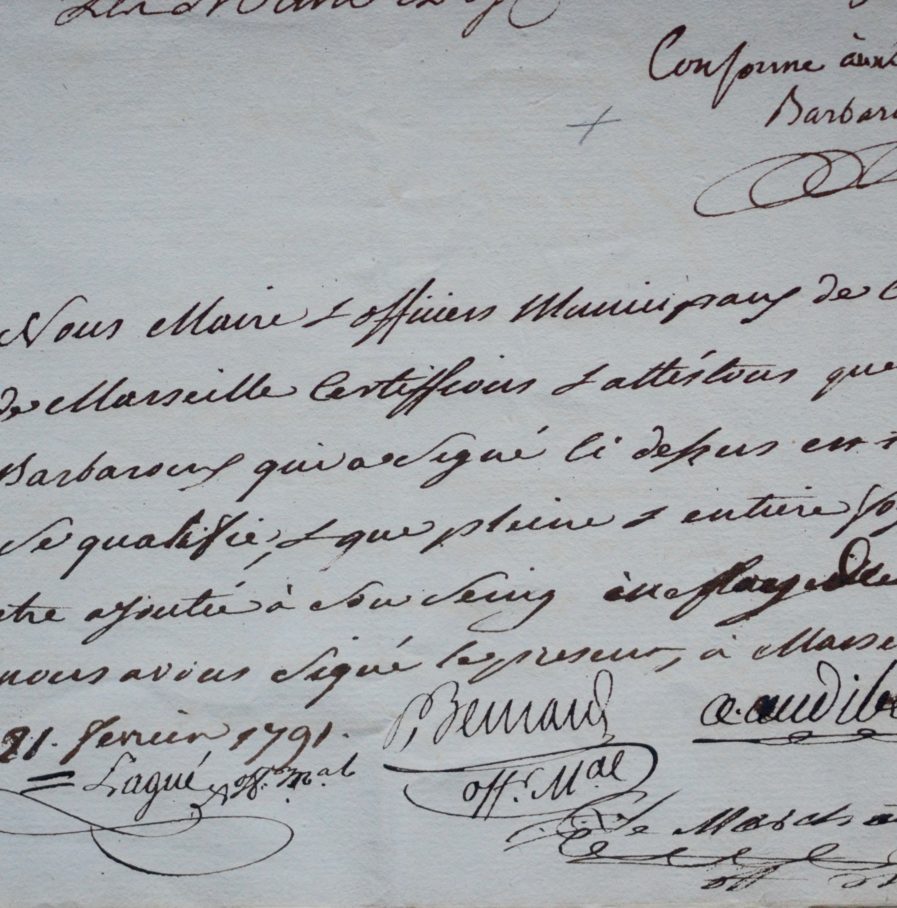 Conforme aux
Barbaro
Nous Maire & officiers Municipaux de
de Marseille Certiffions & attéstons que
Barbaroux qui a Signé Ci dessus en
Se qualifie, & que pleine & entiere foy
etre ajoutée à Son Seing en
nous avons Signé le present, à Marse
21. fevrier 1791.
PBernard
a. audibe
= Lagué off. m.al
off. M.al
le March
off